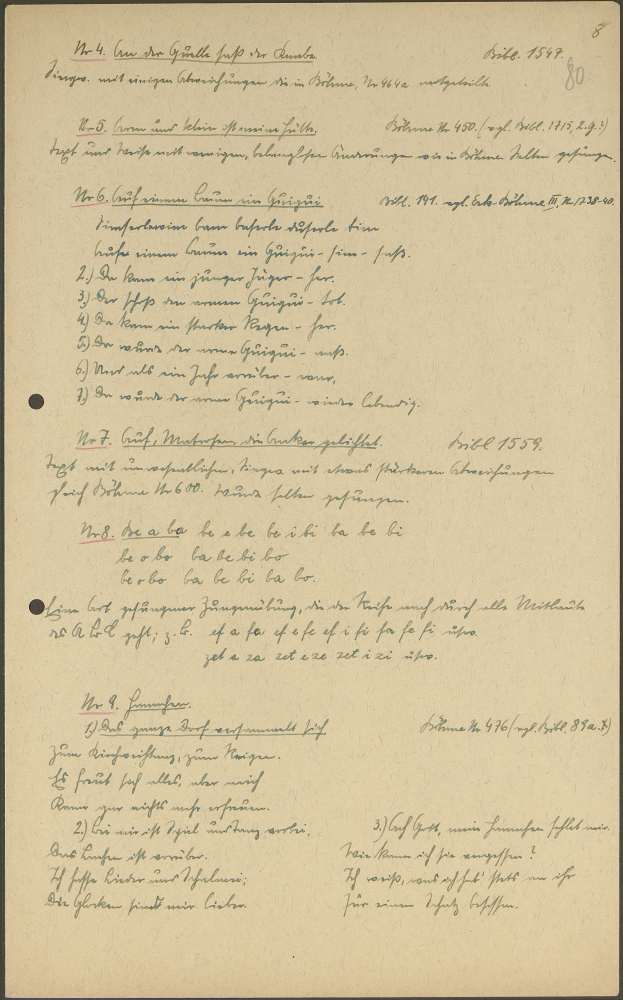 8
80
Nr 4. An der Quelle saß der Knabe. Bibl. 1547.
Singw. mit einigen Abweichungen die in Böhme, Nr 464a mitgeteilte
Nr 5. Arm und klein ist meine Hütte. Böhme Nr 450. (vgl. Bibl. 1715, 2.9.?)
Text und Weise mit wenigen, belanglosen Änderungen wie in Böhme. Selten gesungen.
Nr 6. Auf einem Baum ein Guigui Bibl. 191. vgl. Erk-Böhme III, Nr. 1738-40.
Simserlawim bam baserle duserle dim
Aufs einem Baum ein Guigui - sim - saß.
2.) Da kam ein junger Jäger - her.
3.) Der schoß den armen Guigui - tot.
4.) Da kam ein starker Regen - her.
5.) Da wurde der arme Guigui - naß.
6.) Und als ein Jahr vorüber - war,
7.) Da wurde der arme Guigui - wieder lebendig.
Nr 7. Auf, Matrosen, die Anker gelichtet. Bibl 1559.
Text mit unwesentlichen, Singw. mit etwas stärkeren Abweichungen
gleich Böhme Nr 600. Wurde selten gesungen.
Nr 8. Be a ba be e be be i bi ba be bi
be o bo ba be bi bo
be o bo ba be bi ba bo.
Eine Art gesungener Zungenübung, die der Reihe nach durch alle Mitlaute
des ABC geht; z. B. ef a fa ef e fe ef i fi fa fe fi usw.
zet a za zet e ze zet i zi usw.
Nr 9. Hannchen.
1.) Das ganze Dorf versammelt sich Böhme Nr 476 (vgl. Bibl. 89a. 7)
Zum Kirchweihtanz, zum Reigen.
Es freut sich alles, aber mich
Kann gar nichts mehr erfreuen.
2.) Bei mir ist Spiel und Tanz vorbei,
Das Lachen ist vorüber.
Ich hasse Lieder und Schalmei;
Die Glocken sind mir lieber.
3.) Ach Gott, mein Hannchen fehlet mir.
Wie kann ich sie vergessen?
Ich weiß, was ich hab' stets an ihr
Für einen Schatz besessen.